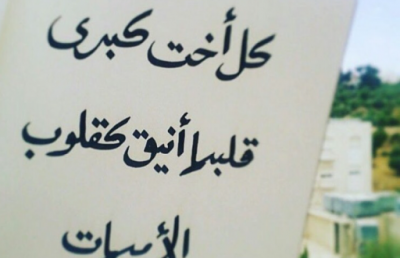 كل أخت كبرى
قلبها أنيق كقلوب
الأميرات